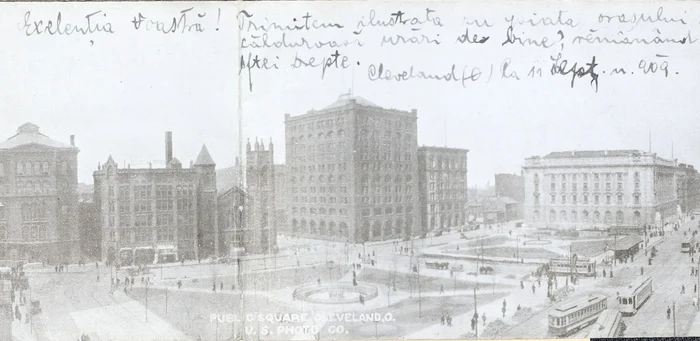 Exelenția Voastră! Trimitem ilustrata cu piața orașului
călduroase urări de bine, rămânând
Cleveland (O) la 11 Sept. n. 909.
PUBLIC SQUARE, CLEVELAND, O.
U. S. PHOTO CO.